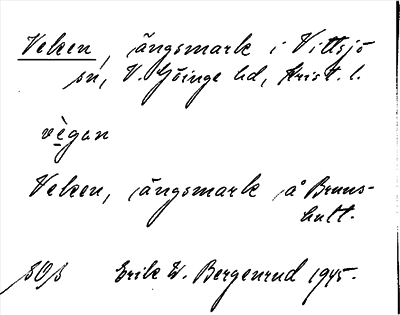 Veken, ängsmark i Vittsjö
sn, V. Göinge hd, Krist. l.
vègan
Veken, ängsmark å Bruns-
hult.
SOS Erik W. Bergenrud 1945.